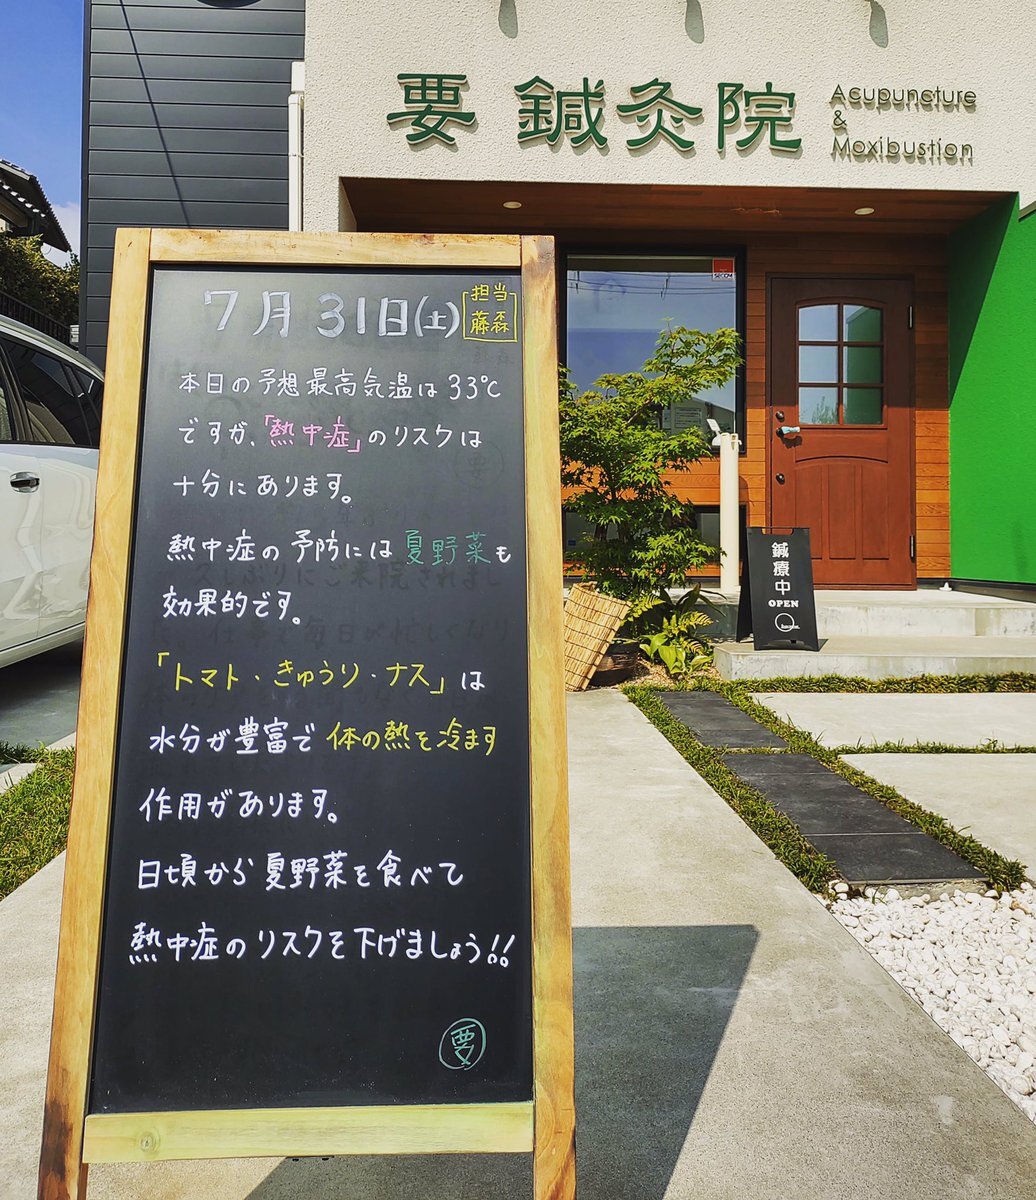 要 鍼灸院
Acupuncture
&
Moxibustion
SECOM
7月31日(土)
担当
藤森
本日の予想最高気温は33℃
ですが、「熱中症」のリスクは
十分にあります。
熱中症の予防には夏野菜も
効果的です。
「トマト・きゅうり・ナス」は
水分が豊富で体の熱を冷ます
作用があります。
日頃から夏野菜を食べて
熱中症のリスクを下げましょう!!
要
鍼療中
OPEN